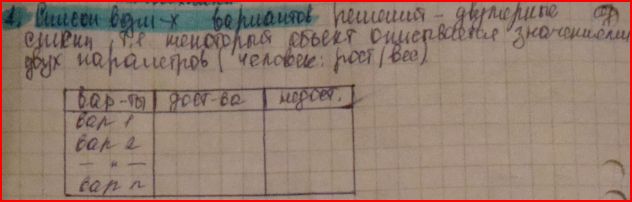 1. Список возм-х вариантов решений - двумерные
списки т.е некоторый объект описывается значениями
двух параметров (человек: рост/вес)
вар-ты дост-ва недост.
вар 1
вар 2
— " —
вар n